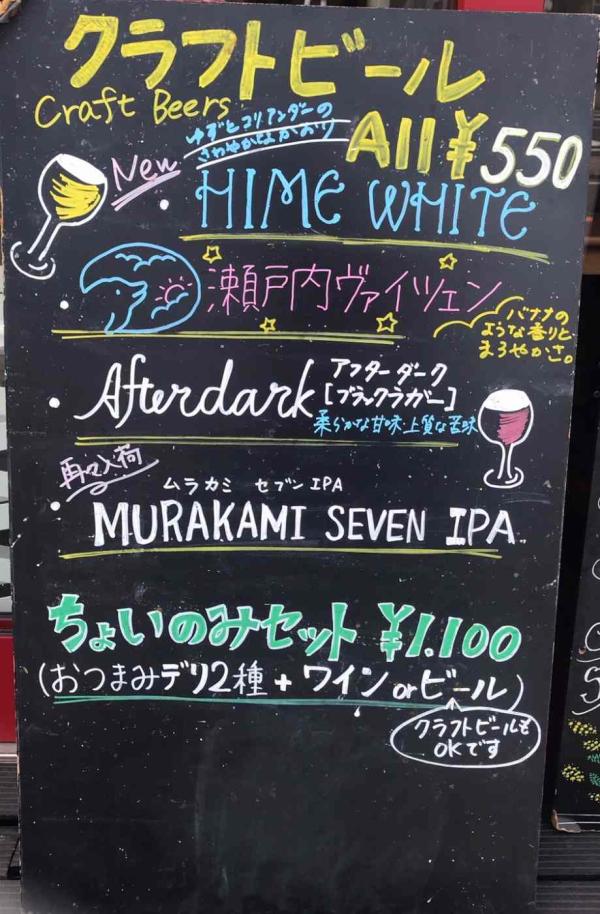 クラフトビール
Craft Beers
ゆずとコリアンダーの
さわやかなかおり
All ¥550
New
HIME WHITE
瀬戸内ヴァイツェン
バナナの
ような香りと
まろやかさ。
Afterdark
アフターダーク
[ブラックラガー]
柔らかな甘味・上質な苦味
再々入荷
ムラカミ セブンIPA
MURAKAMI SEVEN IPA
ちょいのみセット ¥1.100
(おつまみデリ2種 + ワイン or ビール)
クラフトビールも
OKです